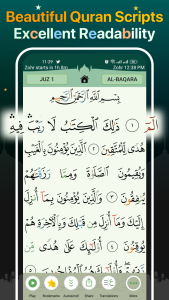 Beautiful Quran Scripts
Excellent Readability
11:29
Zahr starts in 1h 8m
Zohr 12:38 PM
JUZ 1
AL-BAQARA
بِسْمِ اللّٰهِ الرَّحْمٰنِ الرَّحِيْمِ
الٓمّٓ ۝١ ذٰلِكَ الْكِتٰبُ لَا رَيْبَ ۛ فِيْهِ ۛ
هُدًى لِّلْمُتَّقِيْنَ ۝٢ الَّذِيْنَ يُؤْمِنُوْنَ
بِالْغَيْبِ وَيُقِيْمُوْنَ الصَّلٰوةَ وَمِمَّا رَزَقْنٰهُمْ
يُنْفِقُوْنَ ۝٣ وَالَّذِيْنَ يُؤْمِنُوْنَ بِمَآ اُنْزِلَ
اِلَيْكَ وَمَآ اُنْزِلَ مِنْ قَبْلِكَ ۚ وَبِالْاٰخِرَةِ هُمْ
يُوْقِنُوْنَ ۝٤ اُولٰٓئِكَ عَلٰى هُدًى مِّنْ
Play
Bookmarks
Autoscroll
Share
Translations
More